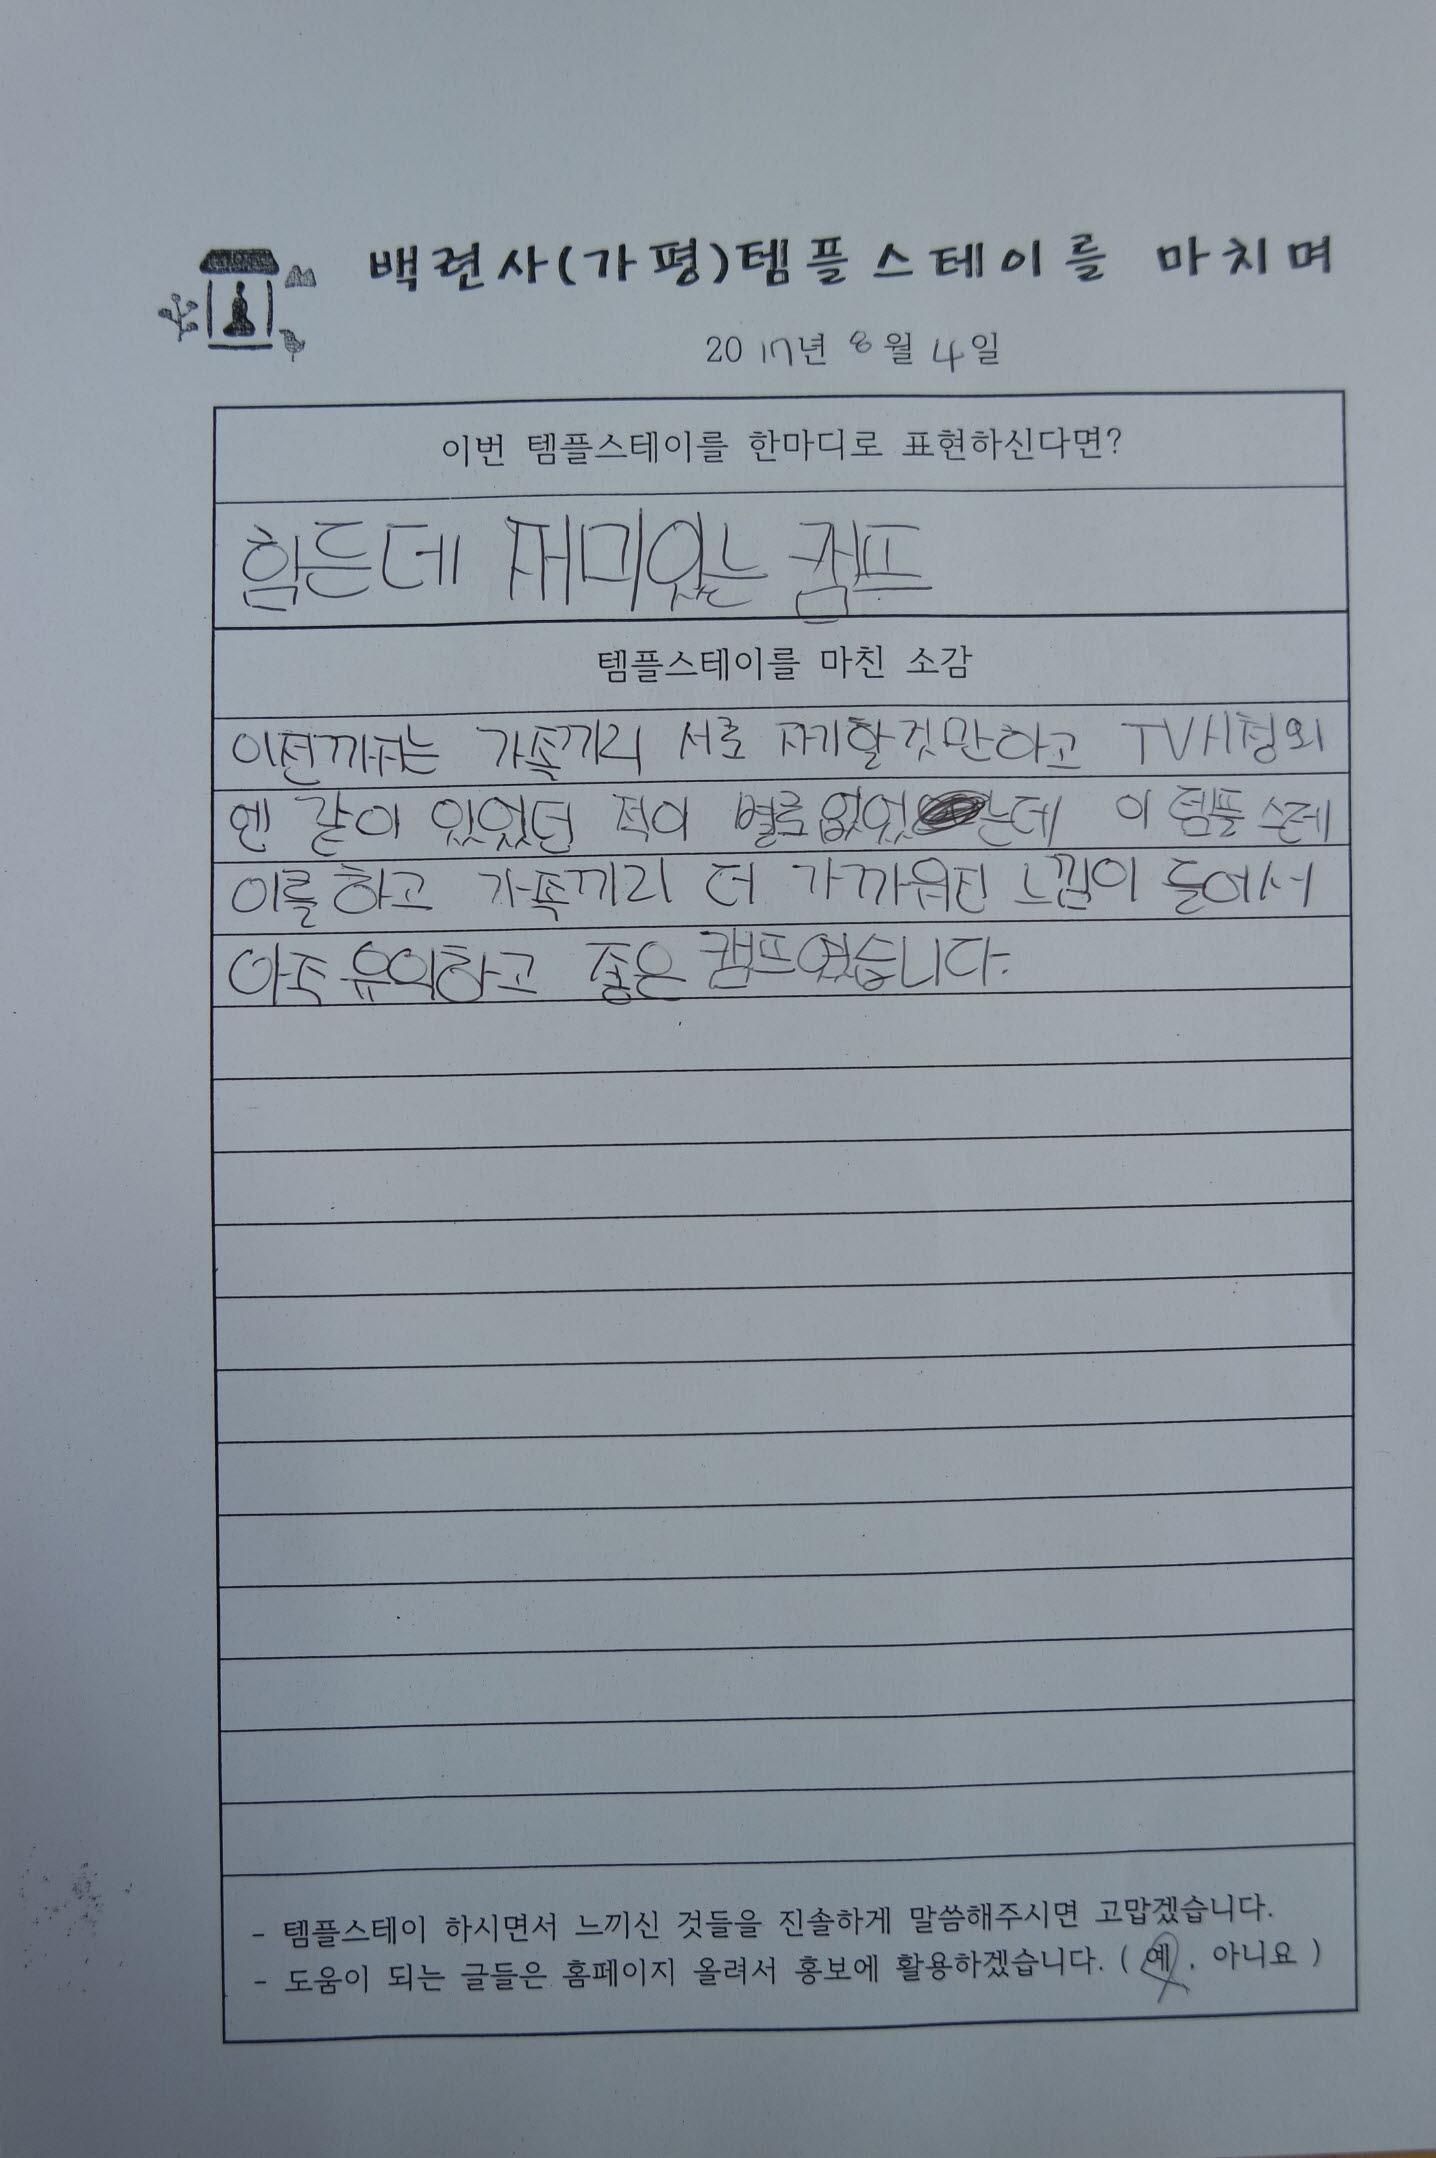 백련사(가평)템플스테이를 마치며
2017년 8월 4일
이번 템플스테이를 한마디로 표현하신다면?
힘든데 재미있는 캠프
템플스테이를 마친 소감
이전까지는 가족끼리 서로 자기할것만하고 TV시청외
엔 같이 있었던 적이 별로없었는데 이 템플스테
이를하고 가족끼리 더 가까워진 느낌이 들어서
아주유익하고 좋은 캠프였습니다.
- 템플스테이 하시면서 느끼신 것들을 진솔하게 말씀해주시면 고맙겠습니다.
- 도움이 되는 글들은 홈페이지 올려서 홍보에 활용하겠습니다. ( 예 , 아니요 )